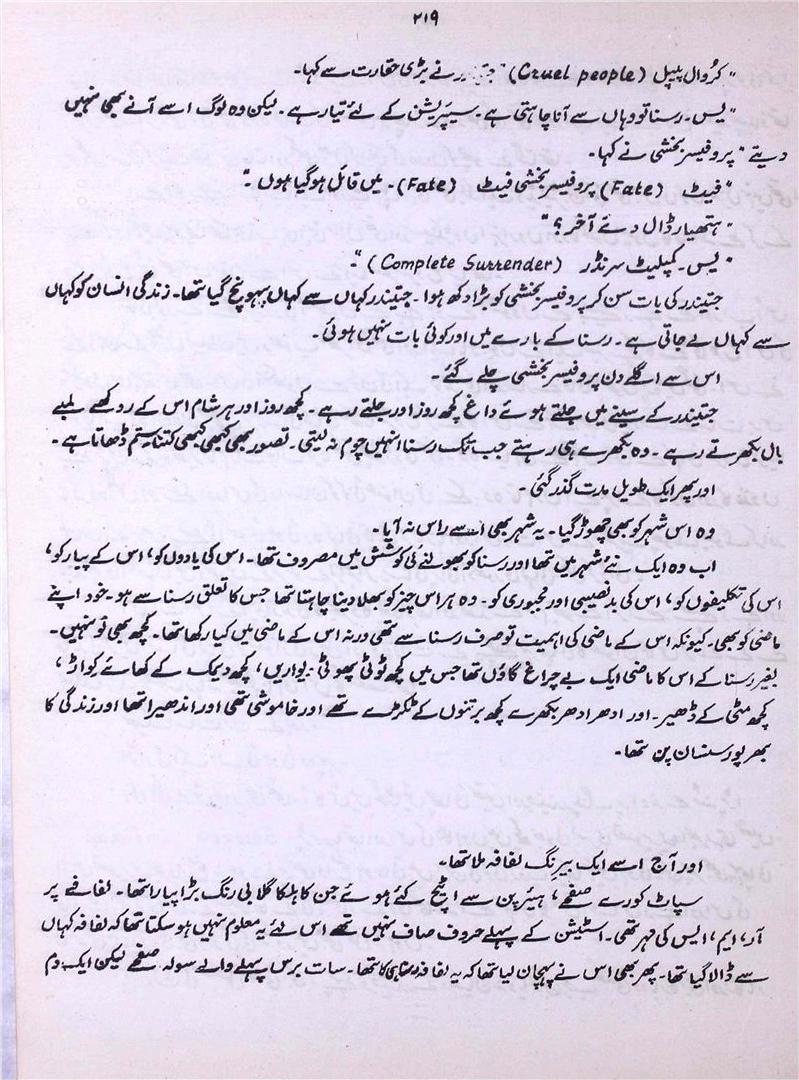 ۲۱۹
"کرُوال پیپل (Cruel people)" جتیندر نے بڑی حقارت سے کہا۔
"یس۔ رسنا تو وہاں سے آنا چاہتی ہے۔ سیپریشن کے لئے تیار ہے۔ لیکن وہ لوگ اسے آنے بھی نہیں
دیتے" پروفیسر بخشی نے کہا۔
"فیٹ (Fate) پروفیسر بخشی فیٹ (Fate)۔ میں قائل ہوگیا ہوں۔"
"ہتھیار ڈال دئے آخر؟"
"یس۔ کمپلیٹ سرنڈر (Complete Surrender)"۔
جتیندر کی بات سن کر پروفیسر بخشی کو بڑا دکھ ہوا۔ جتیندر کہاں سے کہاں پہونچ گیا تھا۔ زندگی انسان کو کہاں
سے کہاں لے جاتی ہے۔ رسنا کے بارے میں اور کوئی بات نہیں ہوئی۔
اس سے اگلے دن پروفیسر بخشی چلے گئے۔
جتیندر کے سینے میں جلتے ہوئے داغ کچھ روز اور جلتے رہے۔ کچھ روز اور ہر شام اس کے روکھے لمبے
بال بکھرتے رہے۔ وہ بکھرے ہی رہتے جب تک رسنا انہیں چوم نہ لیتی۔ تصور بھی کبھی کبھی کتنا ستم ڈھاتا ہے۔
اور پھر ایک طویل مدت گذر گئی۔
وہ اس شہر کو بھی چھوڑ گیا۔ یہ شہر بھی اسے راس نہ آیا۔
اب وہ ایک نئے شہر میں تھا اور رسنا کو بھولنے کی کوشش میں مصروف تھا۔ اس کی یادوں کو، اس کے پیار کو،
اس کی تکلیفوں کو، اس کی بدنصیبی اور مجبوری کو۔ وہ ہر اس چیز کو بھلا دینا چاہتا تھا جس کا تعلق رسنا سے ہو۔ خود اپنے
ماضی کو بھی۔ کیونکہ اس کے ماضی کی اہمیت تو صرف رسنا سے تھی ورنہ اس کے ماضی میں کیا رکھا تھا۔ کچھ بھی تو نہیں۔
بغیر رسنا کے اس کا ماضی ایک بے چراغ گاؤں تھا جس میں کچھ ٹوٹی پھوٹی دیواریں، کچھ دیمک کے کھائے کواڑ،
کچھ مٹی کے ڈھیر۔ اور ادھر ادھر بکھرے کچھ برتنوں کے ٹکڑے تھے اور خاموشی تھی اور اندھیرا تھا اور زندگی کا
بھرپور سنسان پن تھا۔
اور آج اسے ایک بیرنگ لفافہ ملا تھا۔
سپاٹ کورے صفحے، ہیئرپن سے اٹیچ کئے ہوئے جن کا ہلکا گلابی رنگ بڑا پیارا تھا۔ لفافے پر
آر، ایم، ایس کی مہر تھی۔ اسٹیشن کے پہلے حروف صاف نہیں تھے اس لئے یہ معلوم نہیں ہو سکتا تھا کہ لفافہ کہاں
سے ڈالا گیا تھا۔ پھر بھی اس نے پہچان لیا تھا کہ یہ لفافہ رسنا ہی کا تھا۔ سات برس پہلے والے سولہ صفحے لیکن ایک دم